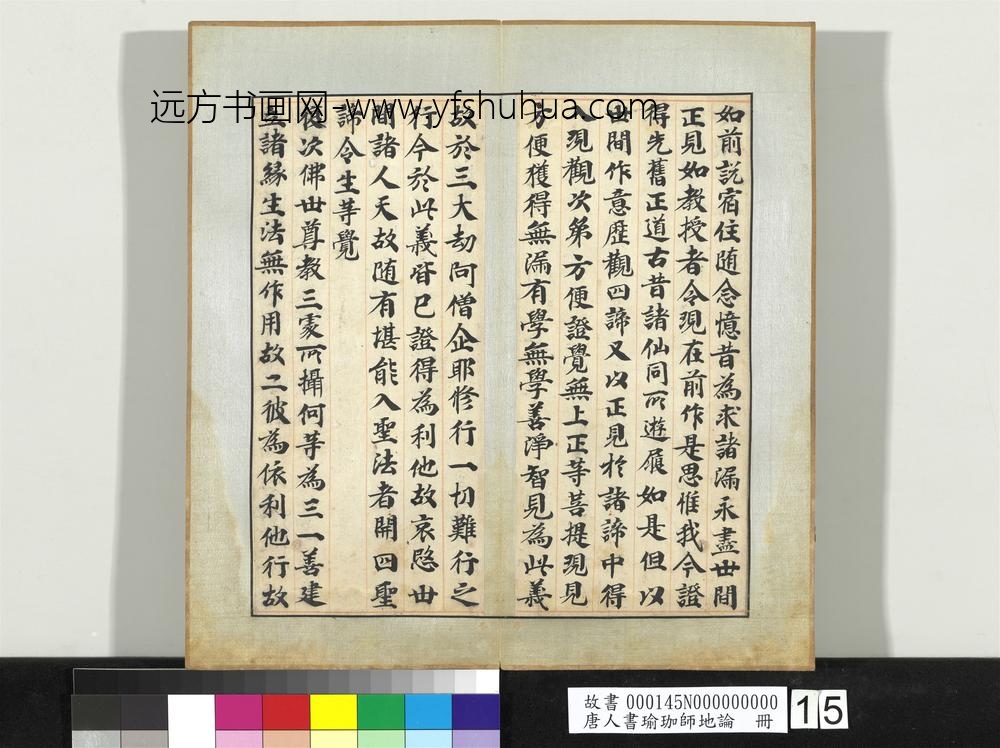 远方书画网-www.yfshuhua.com
如前說宿住随念憶昔為求諸漏永盡世間
正見如教授者令現在前作是思惟我今證
得先舊正道古昔諸仙同所遊履如是但以
世間作意歷觀四諦又以正見於諸諦中得
入現觀次第方便證覺無上正等菩提現見
方便獲得無漏有學無學善淨智見為此義
故於三大劫阿僧企耶修行一切難行之
行今於此義皆已證得為利他故哀愍世
間諸人天故随有堪能入聖法者開四聖
諦令生等覺
復次佛世尊教三處所攝何等為三一善建
立諸緣生法無作用故二彼為依利他行故
故書 000145N000000000
唐人書瑜珈師地論 冊
15